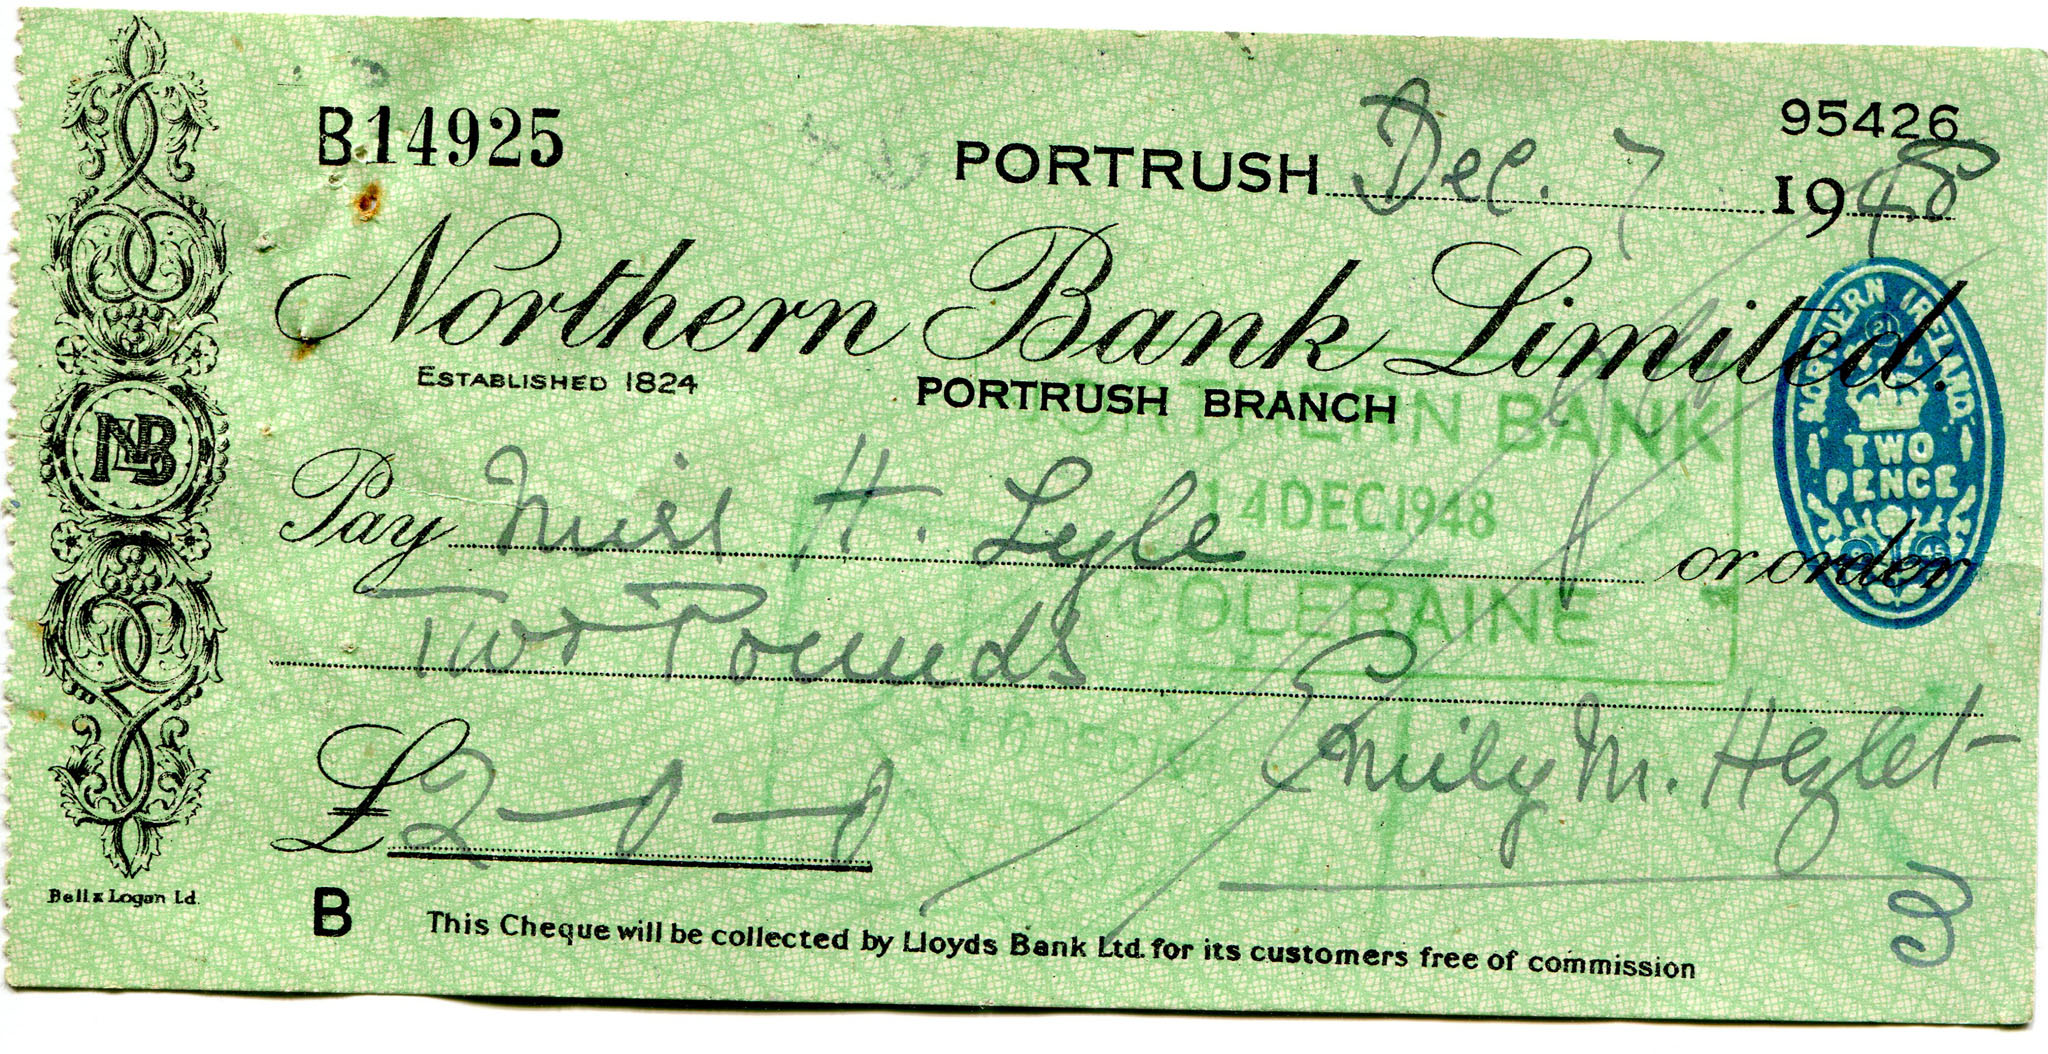 B14925
95426
PORTRUSH Dec. 7 1948
Northern Bank Limited.
ESTABLISHED 1824
PORTRUSH BRANCH
NORTHERN IRELAND
TWO
PENCE
NORTHERN BANK
14 DEC 1948
COLERAINE
NLB
Pay Miss H. Lyle or order
Two Pounds
£2-0-0
Emily M. Hezlet
Bell & Logan Ld.
B
This Cheque will be collected by Lloyds Bank Ltd. for its customers free of commission